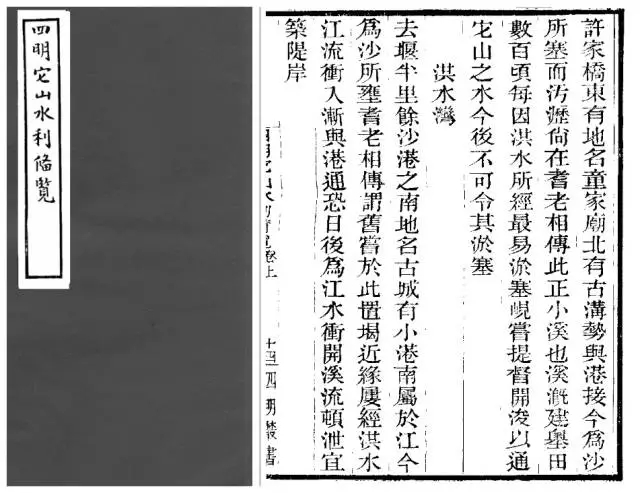 四明它山水利俻覽
許家橋東有地名童家廟北有古溝勢與港接今爲沙
所塞而汚瀝尙在耆老相傳此正小溪也溪漑建嶴田
數百頃每因洪水所經最易淤塞峴嘗提督開浚以通
它山之水今後不可令其淤塞
洪水灣
去堰半里餘沙港之南地名古城有小港南屬於江今
爲沙所壅耆老相傳謂舊嘗於此置堨近緣屢經洪水
江流衝入漸與港通恐日後爲江水衝開溪流頓泄宜
築隄岸
四明它山水利備覽卷上
四明叢書